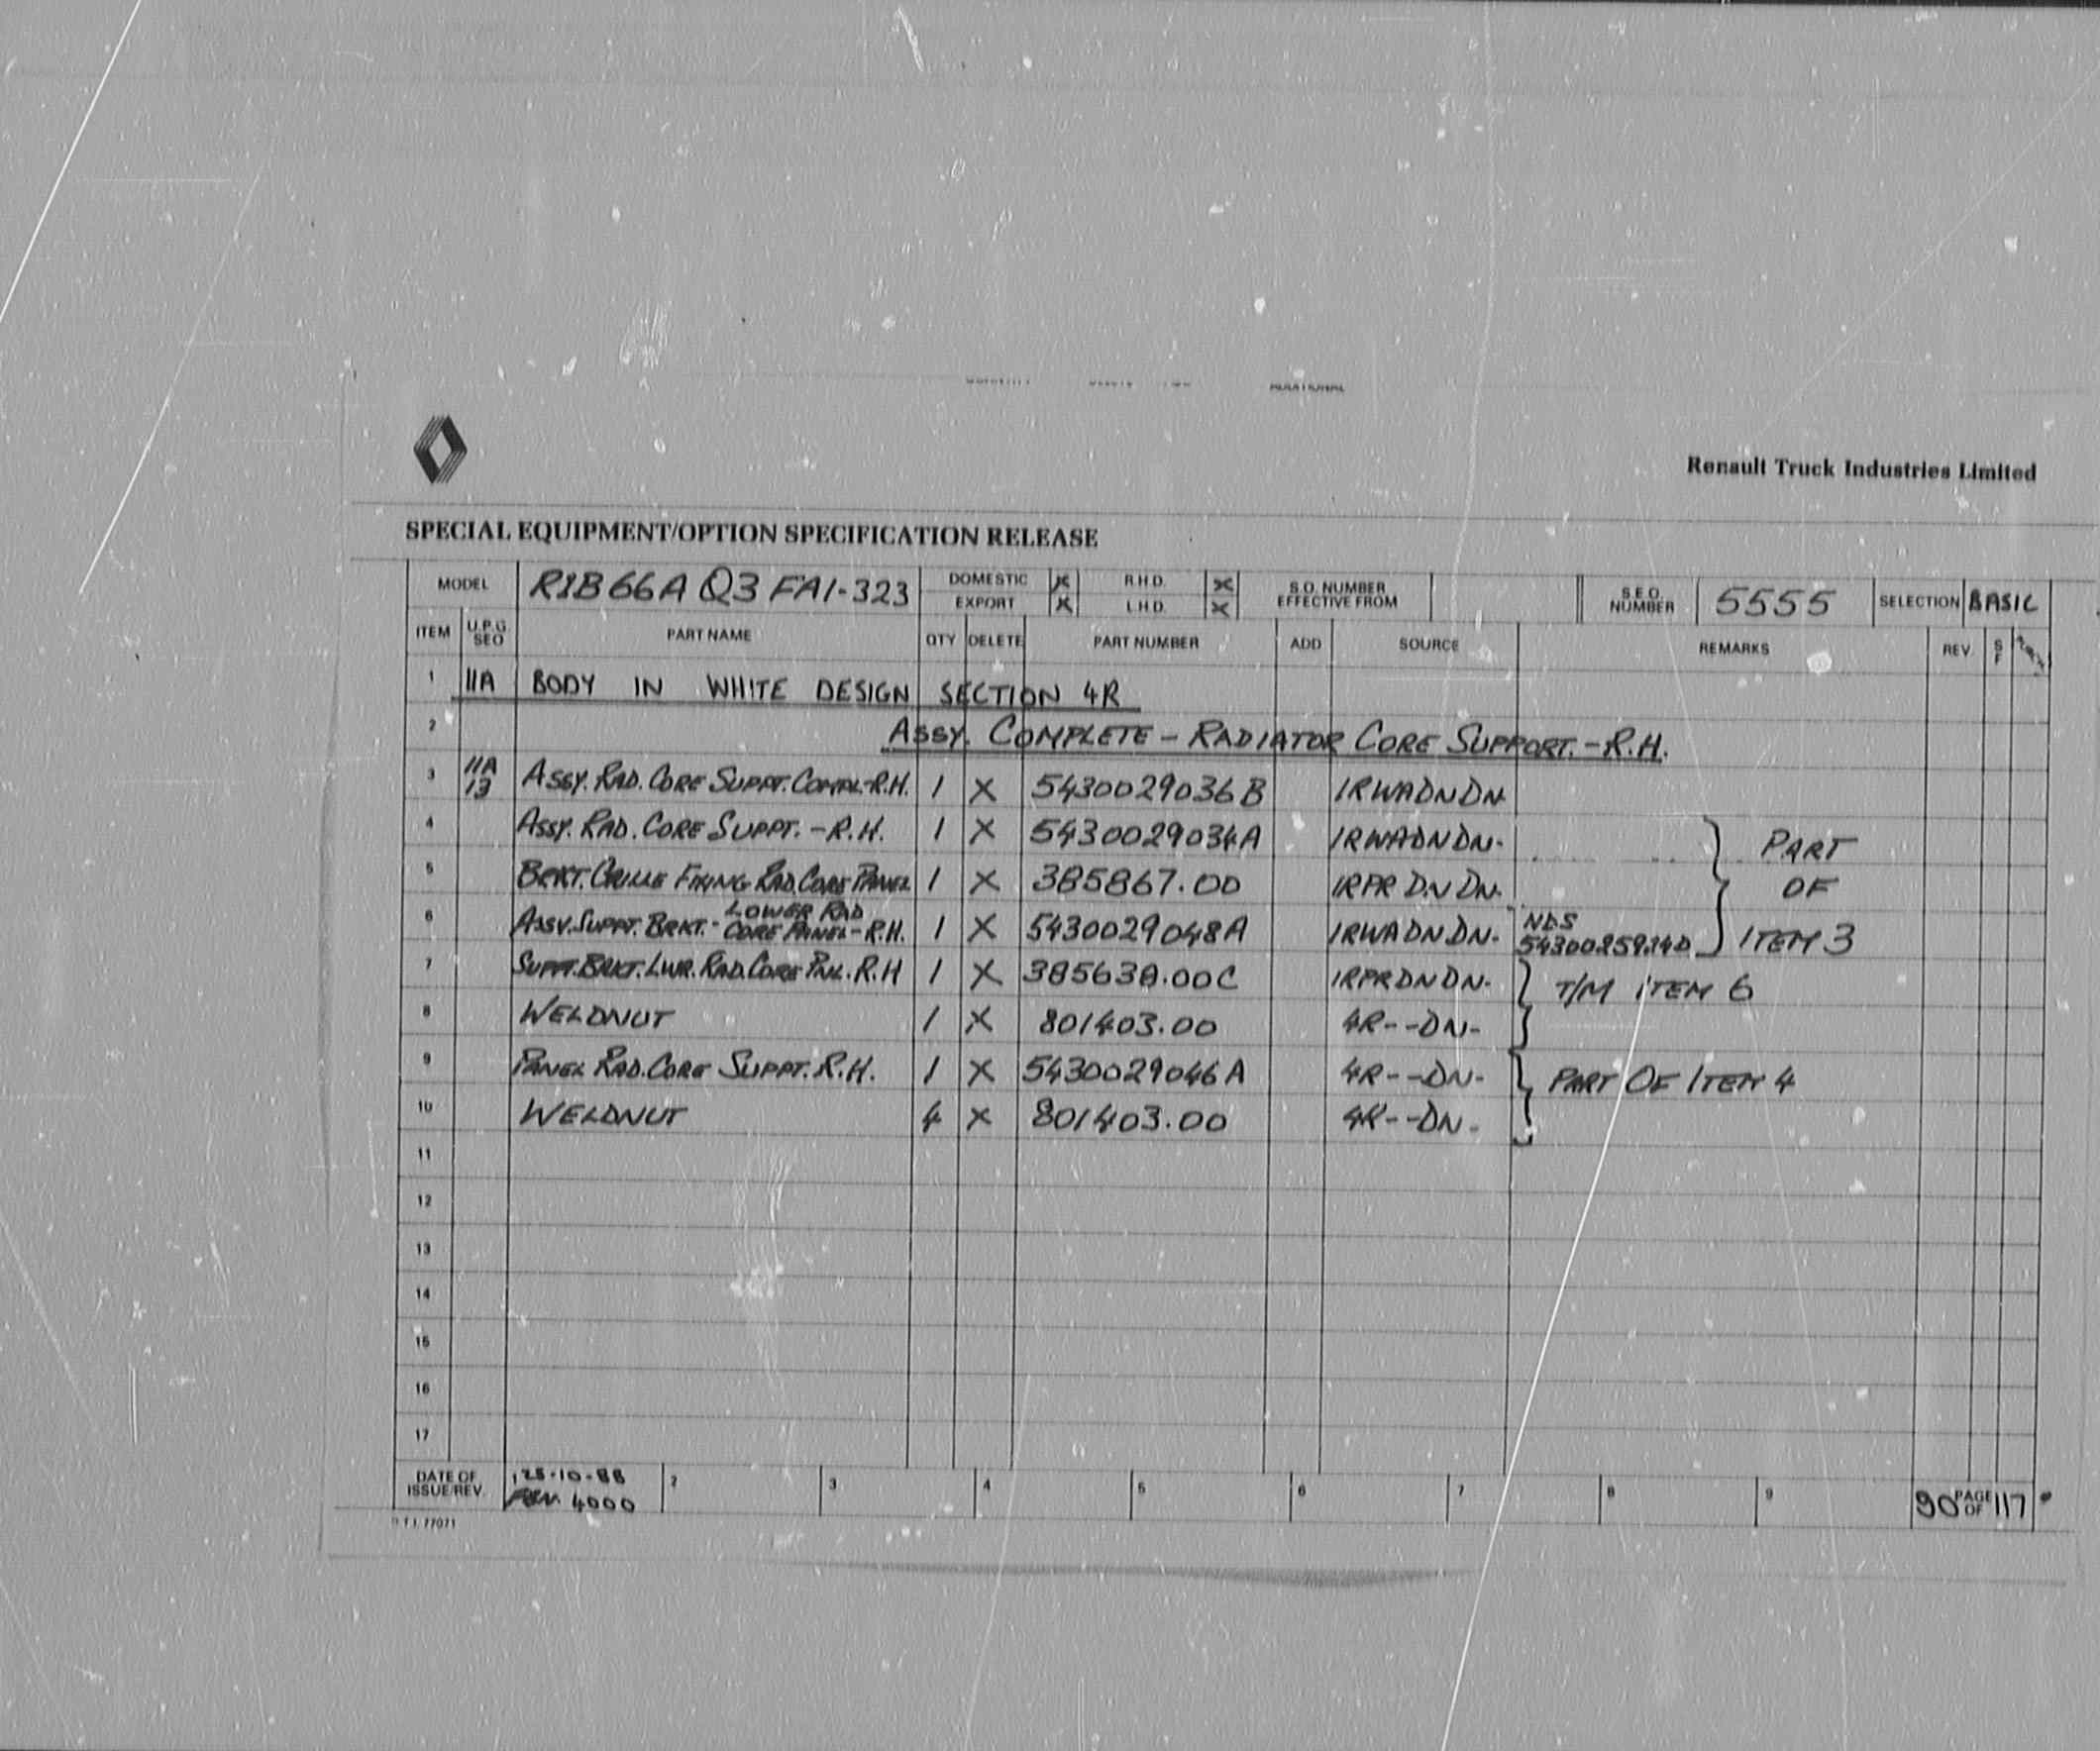 Renault Truck Industries Limited
SPECIAL EQUIPMENT/OPTION SPECIFICATION RELEASE
MODEL R1B66A Q3 FA1-323 DOMESTIC X R.H.D. X S.O. NUMBER EFFECTIVE FROM S.E.O. NUMBER 5555 SELECTION BASIC
EXPORT X L.H.D. X
ITEM U.P.G SEO PART NAME QTY DELETE PART NUMBER ADD SOURCE REMARKS REV. S F
1 11A BODY IN WHITE DESIGN SECTION 4R
2 ASSY. COMPLETE - RADIATOR CORE SUPPORT. - R.H.
3 11A 13 ASSY. RAD. CORE SUPPT. COMPL-R.H. 1 X 5430029036B 1RWADNDN
4 ASSY. RAD. CORE SUPPT. - R.H. 1 X 5430029034A 1RWADNDN- } PART
5 BRKT. GRILLE FIXING RAD. CORE PANEL 1 X 385867.00 1RPRDNDN. OF
6 ASSY. SUPPT. BRKT. - LOWER RAD CORE PANEL - R.H. 1 X 5430029048A 1RWADNDN- NDS ITEM 3
7 SUPPT. BRKT. LWR. RAD. CORE PNL. R.H 1 X 1RPRDNDN- } T/M ITEM 6
8 WELDNUT 1 X 801403.00 4R--DN-
9 PANEL RAD. CORE SUPPT. R.H. 1 X 5430029046A 4R--DN- } PART OF ITEM 4
10 WELDNUT 4 X 801403.00 4R--DN-
11
12
13
14
15
16
17
DATE OF ISSUE/REV. 1 25-10-88 2 3 4 5 6 7 8 9 90 PAGE OF 117
4000
R.T.I. 77071